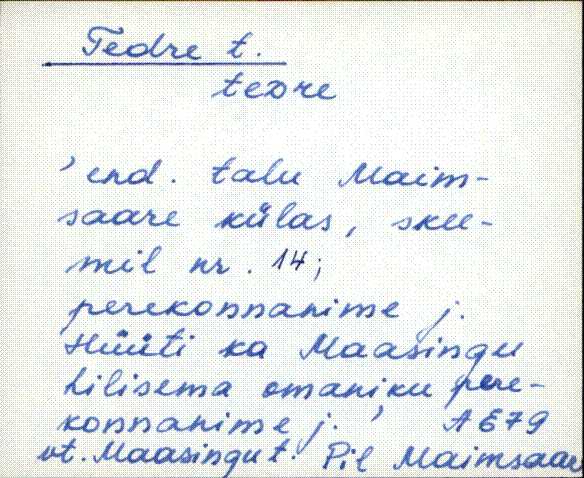 Tedre t.
teDre
'end. talu Maim-
saare külas, skee-
mil nr. 14;
perekonnanime j.
Hüüti ka Maasingu
hilisema omaniku pere-
konnanime j.' A 679
vt. Maasingu t. Pil Maimsaare